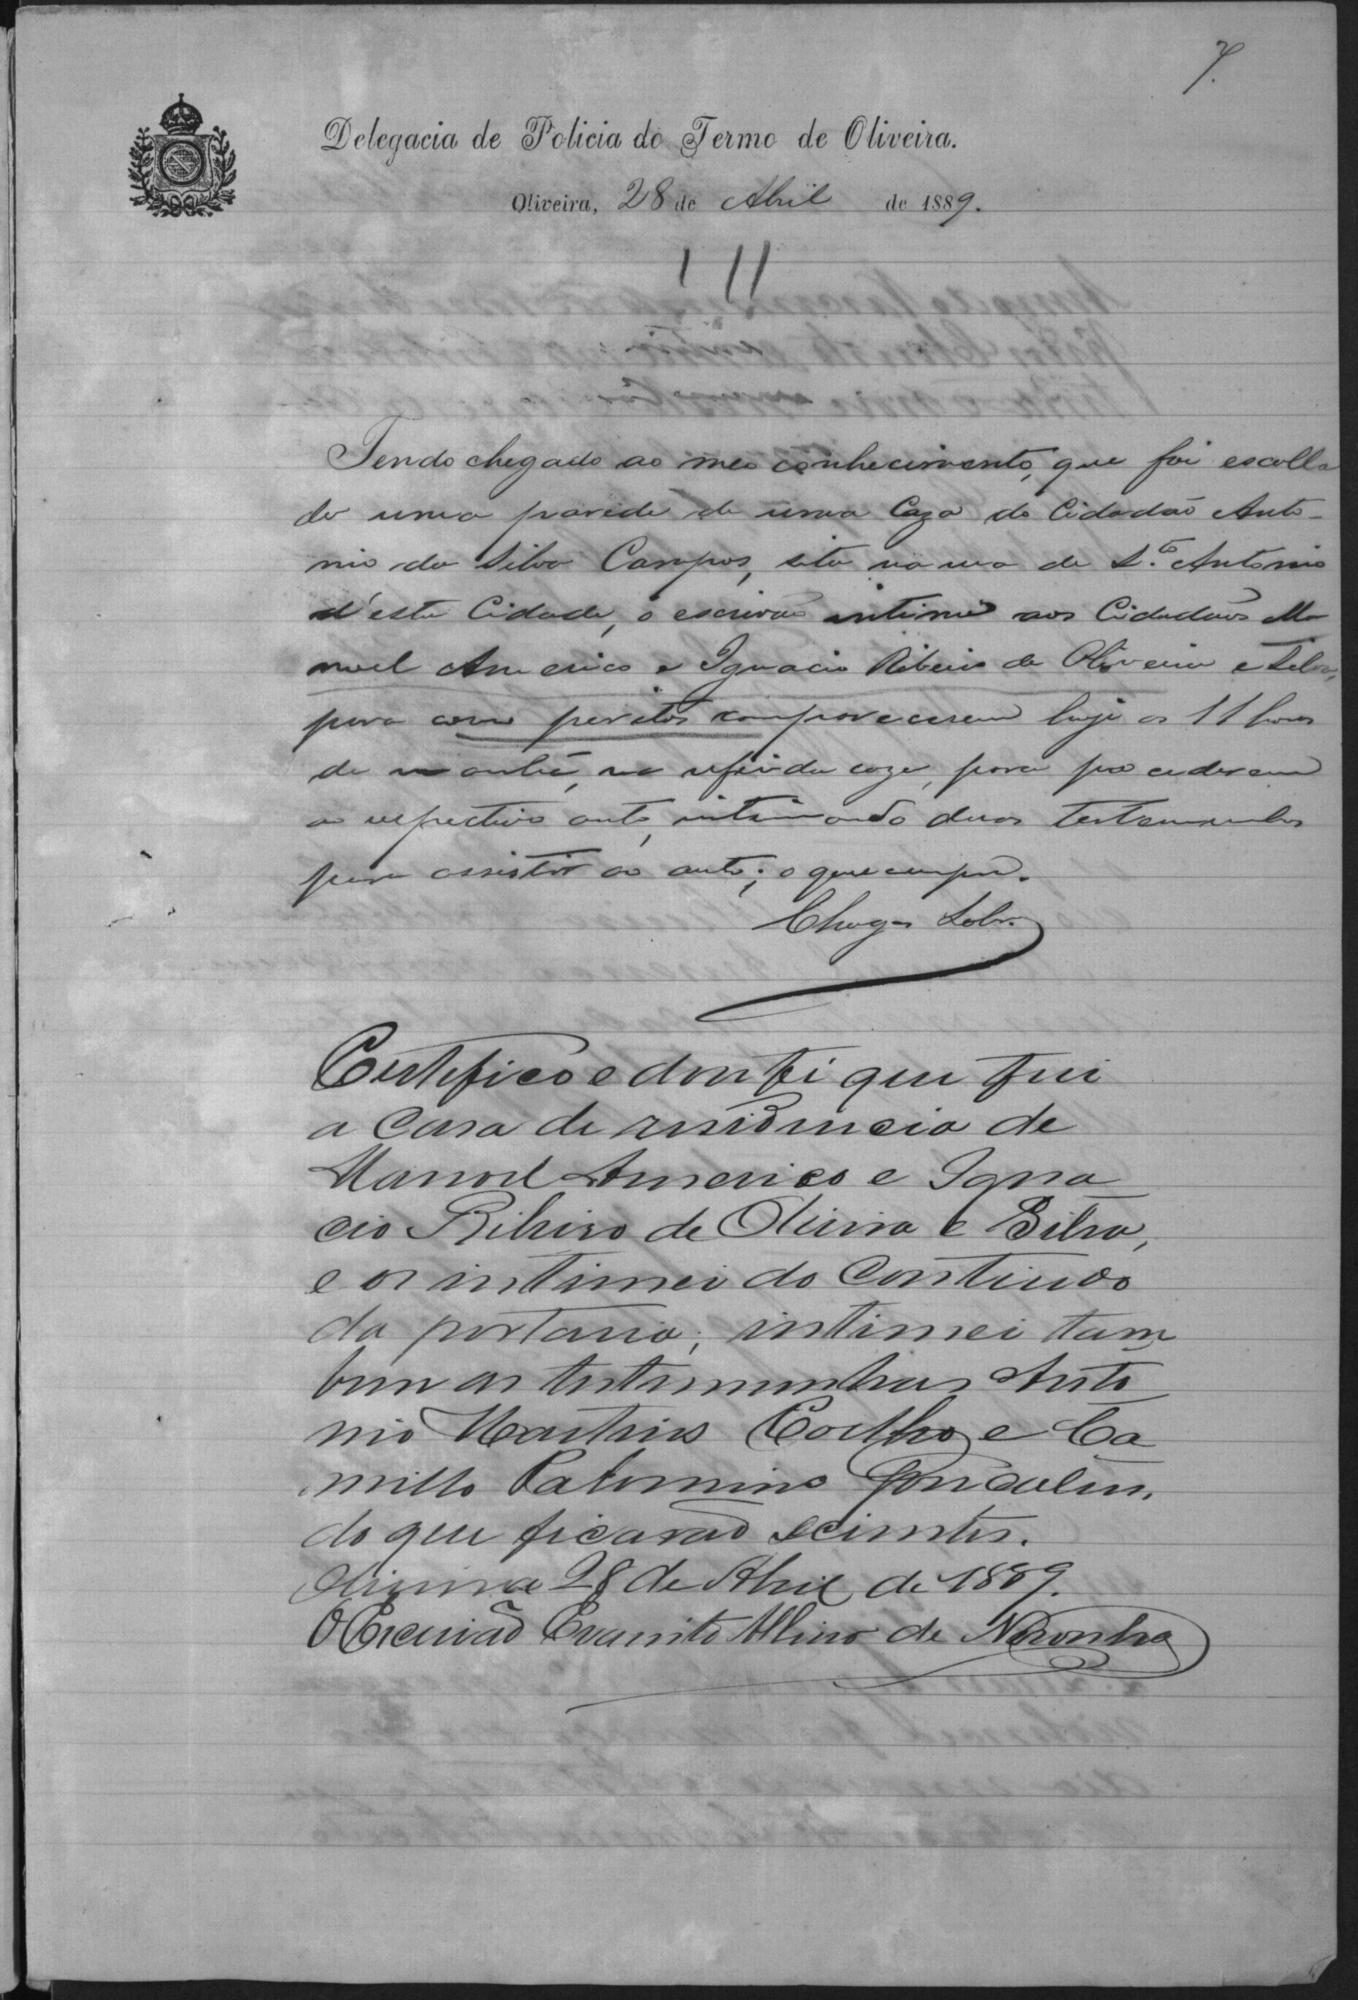 7.
Delegacia de Policia do Termo de Oliveira.
Oliveira, 28 de Abril de 1889.
Tendo chegado ao meo conhecimento, que foi escalla
da uma parede de uma Caza do Cidadão Anto-
nio da Silva Campos, sita na rua de S.to Antonio
d'esta Cidade, o escrivão intime aos Cidadãos Ma
noel Americo e Ignacio Ribeiro de Oliveira e Silva,
para como peritos comparecerem hoje as 11 horas
da manhã, na referida caza, para procederem
ao respectivo auto, intimando duas testemunhas
para assistir ao auto; o que cumpra.
Chagas Sobr.
Certifico e dou fé que fui
a casa de residencia de
Manoel Americo e Igna
cio Ribeiro de Oliveira e Silva,
e os intimei do contiudo
da portaria; intimei tam
bem as testemunhas Anto
nio Martins Coelho e Ca
millo Gonçalves,
do que ficarão scientes.
Oliveira 28 de Abril de 1889.
O Escrivão Evaristo Albino de Noronha